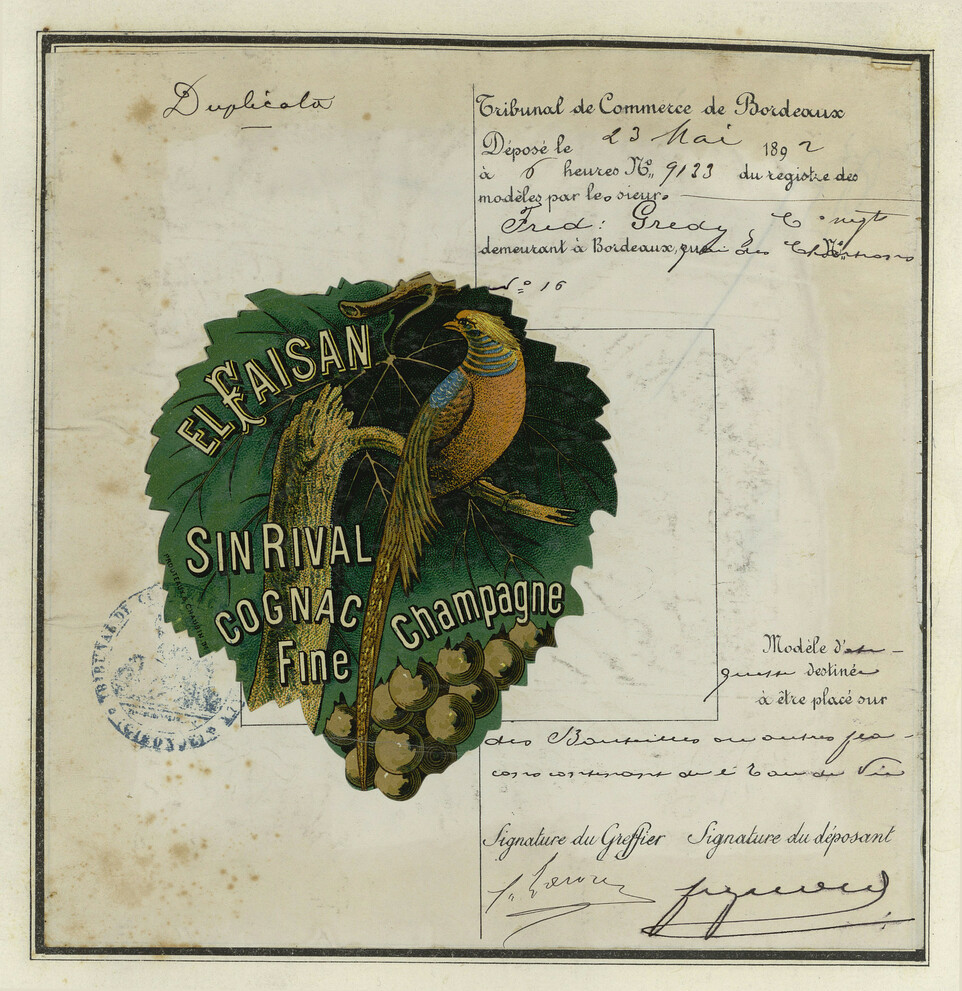 Duplicata
Tribunal de Commerce de Bordeaux
Déposé le 23 Mai 1892
à 6 heures N° 9133 du registre des
modèles par le sieur
Fred: Gredy &
demeurant à Bordeaux, quai des N°
N° 16
EL FAISAN
SIN RIVAL
COGNAC
Fine Champagne
TRIBUNAL DE
Modèle
destinée
à être placé sur
des Bouteilles ou autres fla-
cons contenant de l'Eau de Vie
Signature du Greffier Signature du déposant